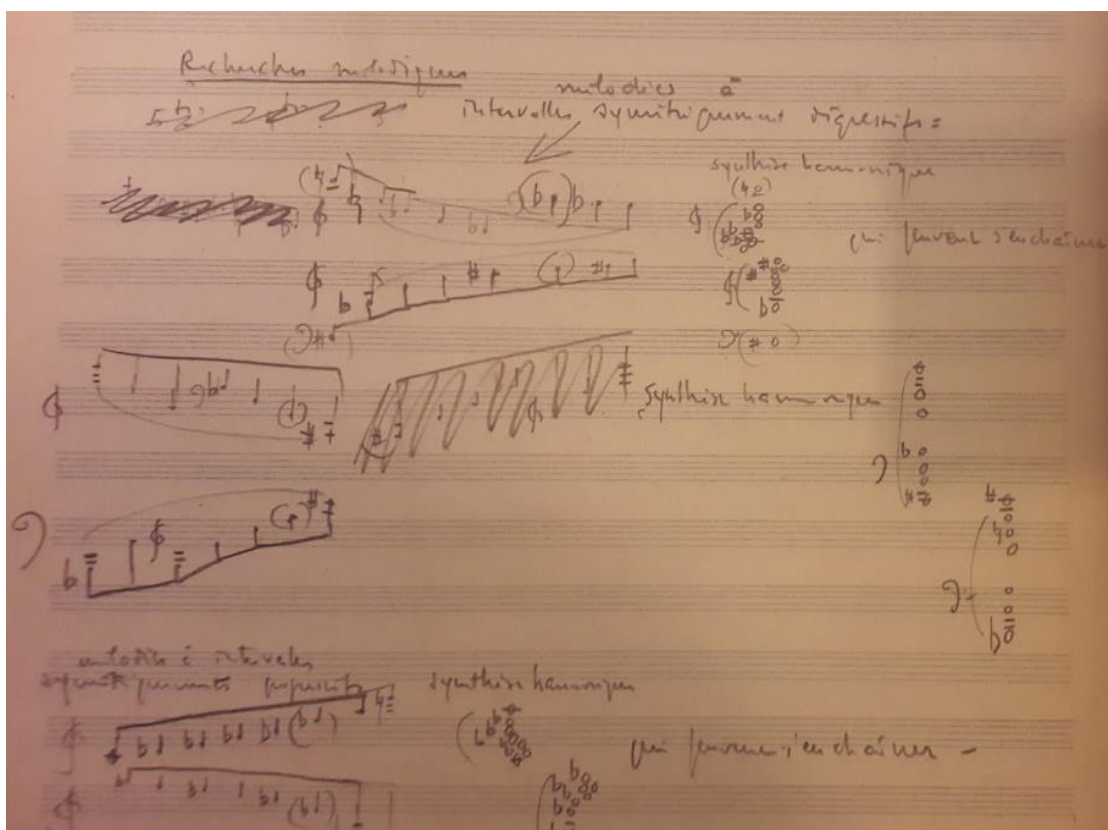 Recherches mélodiques
mélodies à
intervalles symétriquement digressifs =
synthèse harmonique
qui peuvent s'enchaîner
synthèse harmonique
mélodie à intervalles
symétriquement
synthèse harmonique
qui peuvent s'enchaîner -